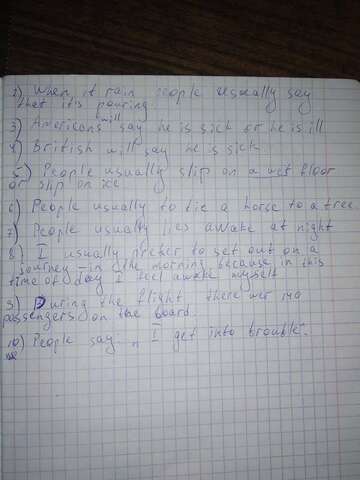 2) When it rain people usually say
that it's pouring
3) Americans will say he is sick or he is ill
4) British will say he is sick
5) People usually slip on a wet floor
or slip on ice
6) People usually to tie a horse to a tree
7) People usually lies awake at night
8) I usually prefer to set out on a
journey in the morning because in this
time of day I feel awake myself
9) During the flight there wer 140
passengers on the board.
10) People say „ I get into trouble".